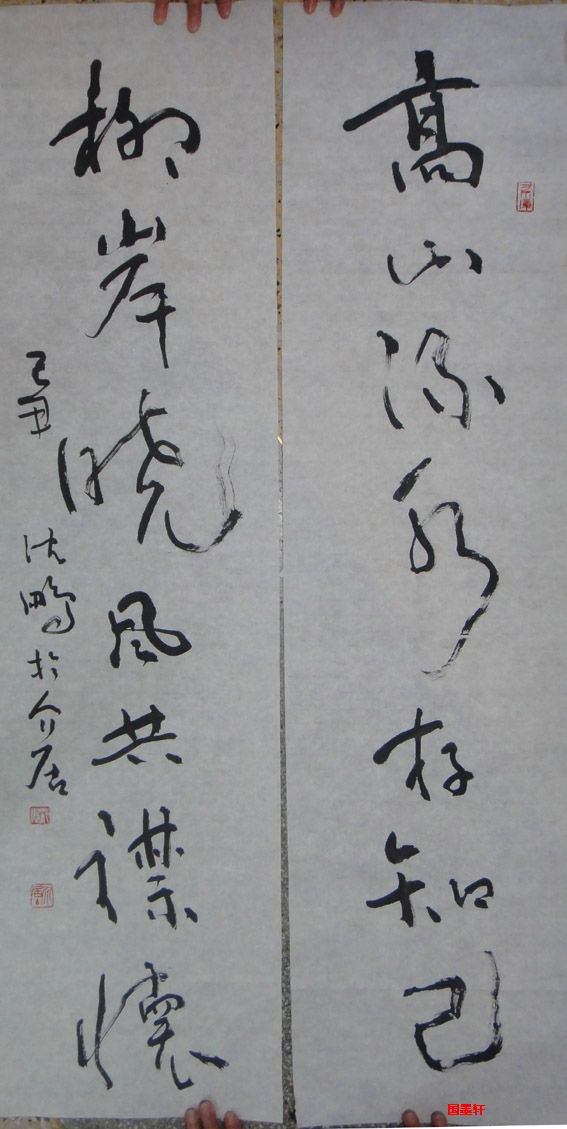 高山流水存知己
柳岸晓风共襟怀
己丑
沈鹏於介居
国墨轩